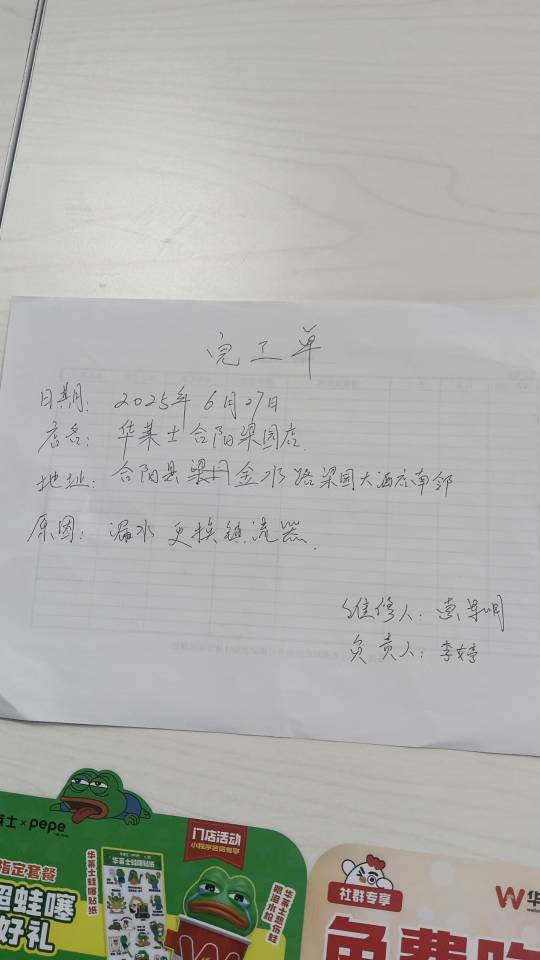 完工单
日期：2025年6月27日
店名：华莱士合阳梁园店.
地址：合阳县金水路梁园大酒店南邻
原因：漏水 更换镇流器.
维修人：明
负责人：李婷
莱士×pepe
指定套餐
超蛙噻
好礼
华莱士蛙噻贴纸
门店活动
小程序会员专享
社群专享
免费吃
W华